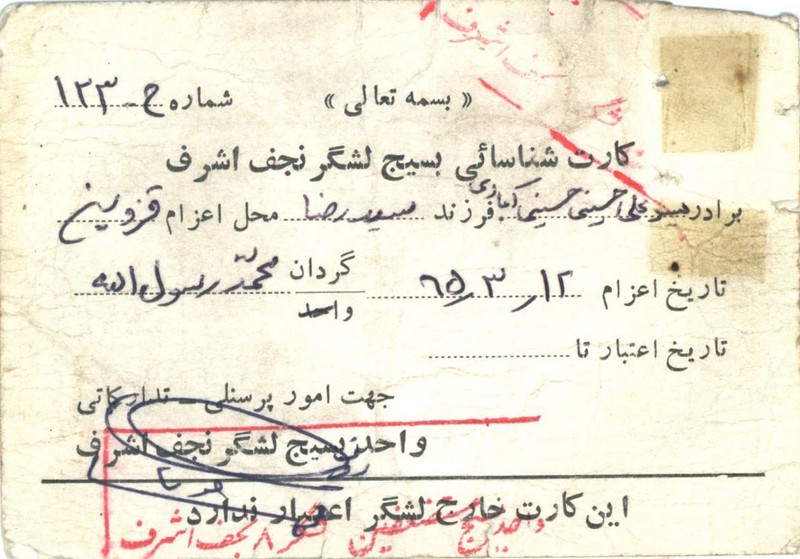 « بسمه تعالی » شماره ح - ۱۲۳
کارت شناسائی بسیج لشگر نجف اشرف
برادر علی حسینی حسینی فرزند سیدرضا محل اعزام قزوین
تاریخ اعزام ۱۲ ر ۳ ر ۶۵ گردان محمّد رسول الله
واحد
تاریخ اعتبار تا
جهت امور پرسنلی - تدارکاتی
واحد بسیج لشگر نجف اشرف
این کارت خارج لشگر اعتبار ندارد
واحد بسیج لشگر ۸ نجف اشرف